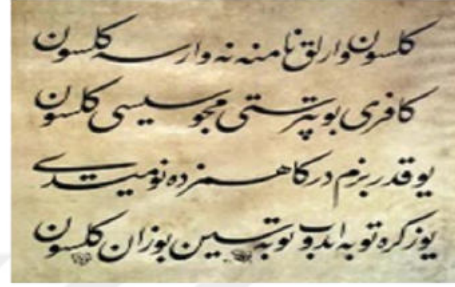 كلسون وارلق نامنه نه وارسه كلسون
كافری بوتپرستی مجوسیسی كلسون
یوقدر بزم دركاهمزده نومیدی
یوز كره توبه ایدوب توبه سین بوزان كلسون